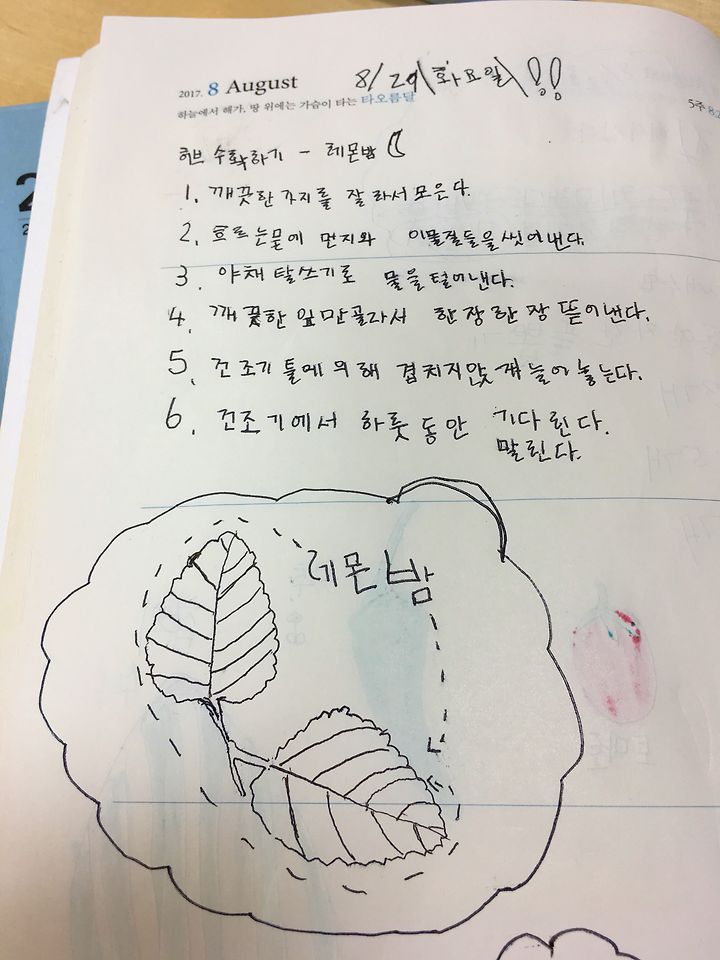 2017. 8 August 8/29(화요일)!!
하늘에서 해가, 땅 위에는 가슴이 타는 타오름달
5주
허브 수확하기 - 레몬밤
1. 깨끗한 가지를 잘라서 모은다.
2. 흐르는물에 먼지와 이물질들을 씻어낸다.
3. 야채 탈쓰기로 물을 털어낸다.
4. 깨끗한 잎만골라서 한장한장 뜯어낸다.
5. 건조기 틀에 위해 겹치지않게 늘어놓는다.
6. 건조기에서 하룻동안 기다린다.
말린다.
레몬밤
2